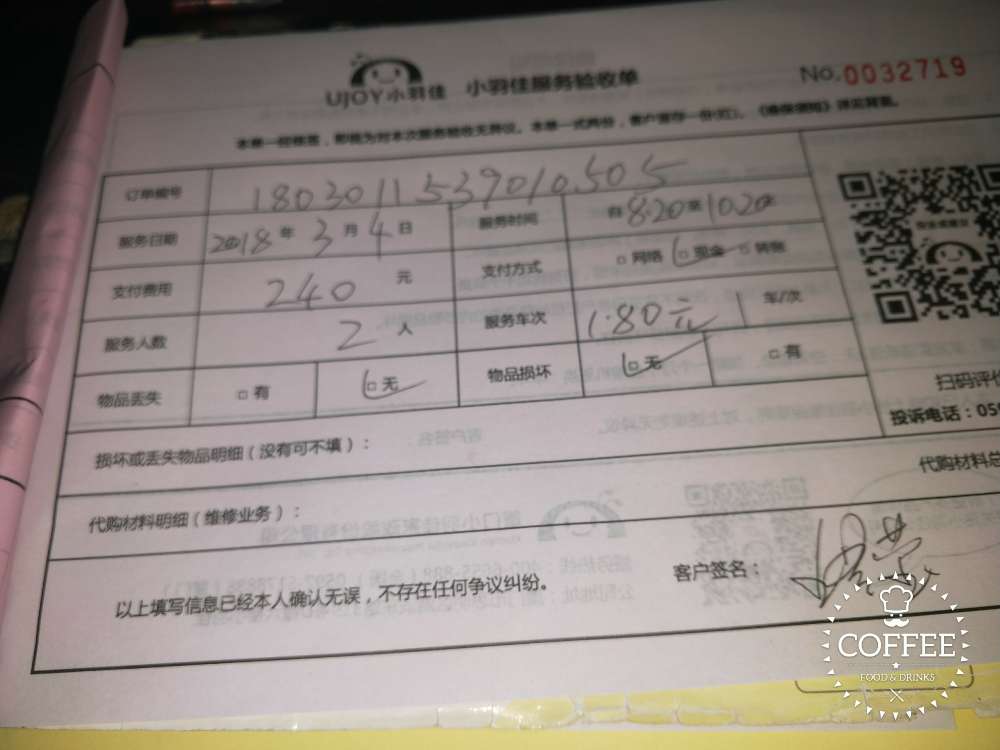 UJOY小羽佳 小羽佳服务验收单
No.0032719
本单一经签署，即视为对本次服务验收无异议。本单一式两份，客户留存一份(红)。
订单编号 1803011539010505
服务日期 2018年3月4日 服务时间 自8:20至10:20止
支付费用 240元 支付方式 □网络 □现金 □转账
服务人数 2人 服务车次 1.80元 车/次
物品丢失 □有 □无 物品损坏 □无 □有
扫码评价
投诉电话：059
损坏或丢失物品明细（没有可不填）：
代购材料总
代购材料明细（维修业务）：
以上填写信息已经本人确认无误，不存在任何争议纠纷。
客户签名：
COFFEE
FOOD & DRINKS